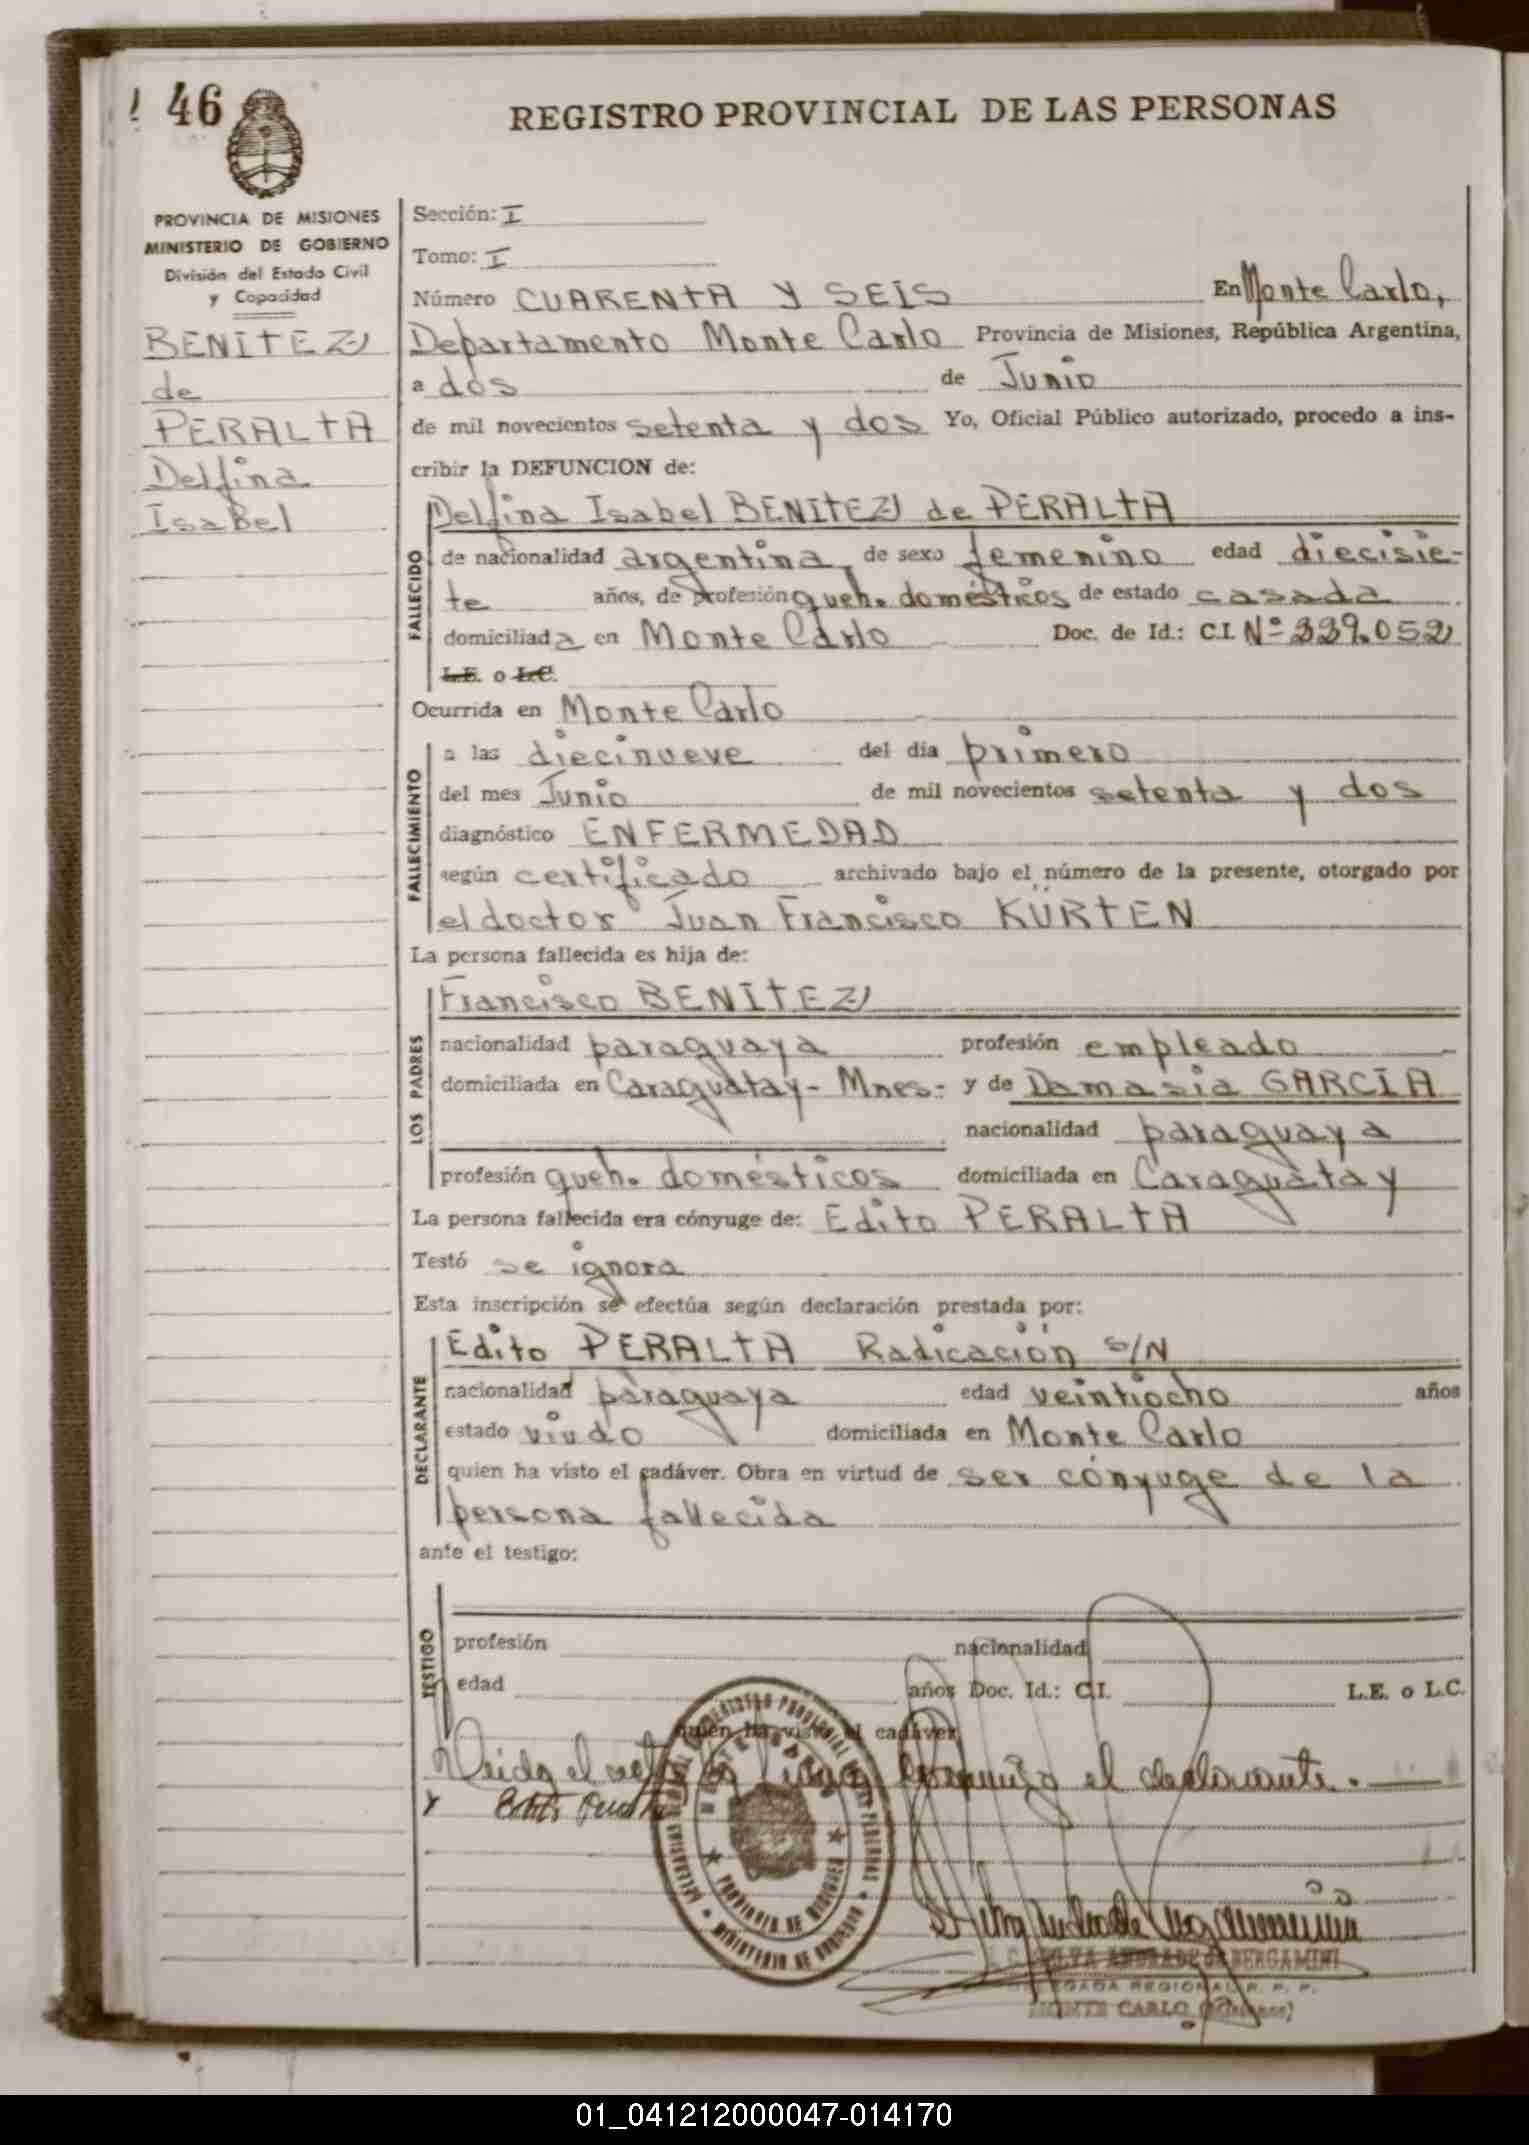 46
REGISTRO PROVINCIAL DE LAS PERSONAS
PROVINCIA DE MISIONES
MINISTERIO DE GOBIERNO
División del Estado Civil
y Capacidad
BENITEZ
de
PERALTA
Delfina
Isabel
Sección: I
Tomo: I
Número CUARENTA Y SEIS En Monte Carlo,
Departamento Monte Carlo Provincia de Misiones, República Argentina,
a dos de Junio
de mil novecientos setenta y dos Yo, Oficial Público autorizado, procedo a ins-
cribir la DEFUNCION de:
FALLECIDO
Delfina Isabel BENITEZ de PERALTA
de nacionalidad argentina, de sexo femenino edad diecisie-
te años, de profesión queh. domésticos de estado casada
domiciliada en Monte Carlo Doc. de Id.: C.I. Nº 339.052
L.E. o L.C.
Ocurrida en Monte Carlo
FALLECIMIENTO
a las diecinueve del día primero
del mes Junio de mil novecientos setenta y dos
diagnóstico ENFERMEDAD
según certificado archivado bajo el número de la presente, otorgado por
el doctor Juan Francisco KÜRTEN
La persona fallecida es hija de:
LOS PADRES
Francisco BENITEZ
nacionalidad paraguaya profesión empleado
domiciliada en Caraguatay - Mnes.- y de Damasia GARCIA
nacionalidad paraguaya
profesión queh. domésticos domiciliada en Caraguatay
La persona fallecida era cónyuge de: Edito PERALTA
Testó se ignora
Esta inscripción se efectúa según declaración prestada por:
DECLARANTE
Edito PERALTA Radicación S/N
nacionalidad paraguaya edad veintiocho años
estado viudo domiciliada en Monte Carlo
quien ha visto el cadáver. Obra en virtud de ser cónyuge de la
persona fallecida
ante el testigo:
TESTIGO
profesión nacionalidad
edad años Doc. Id.: C.I. L.E. o L.C.
quien ha visto el cadáver
Leida el acta la firma conmigo el declarante.
REGISTRO PROVINCIAL DE LAS PERSONAS
PROVINCIA DE MISIONES
MINISTERIO DE GOBIERNO
SILVA ANDRADE de BERGAMINI
DELEGADA REGIONAL R. P. P.
MONTE CARLO (Misiones)
01_041212000047-014170